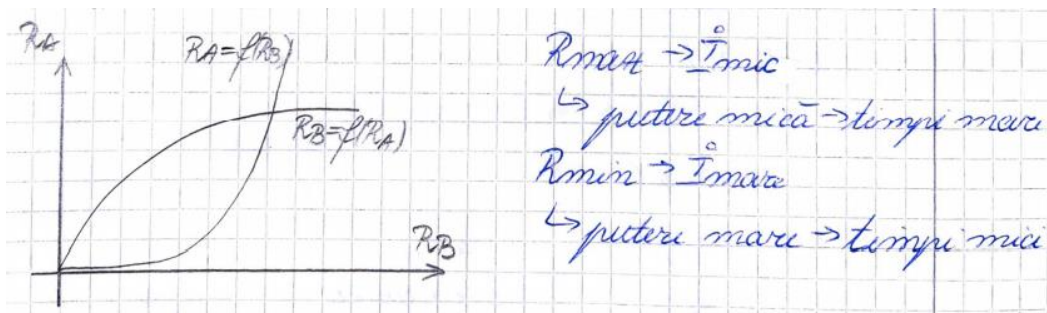 RA
RA=f(RB)
RB=f(RA)
RB
Rmax → I mic
↳ putere mică → timpi mari
Rmin → I mare
↳ putere mare → timpi mici